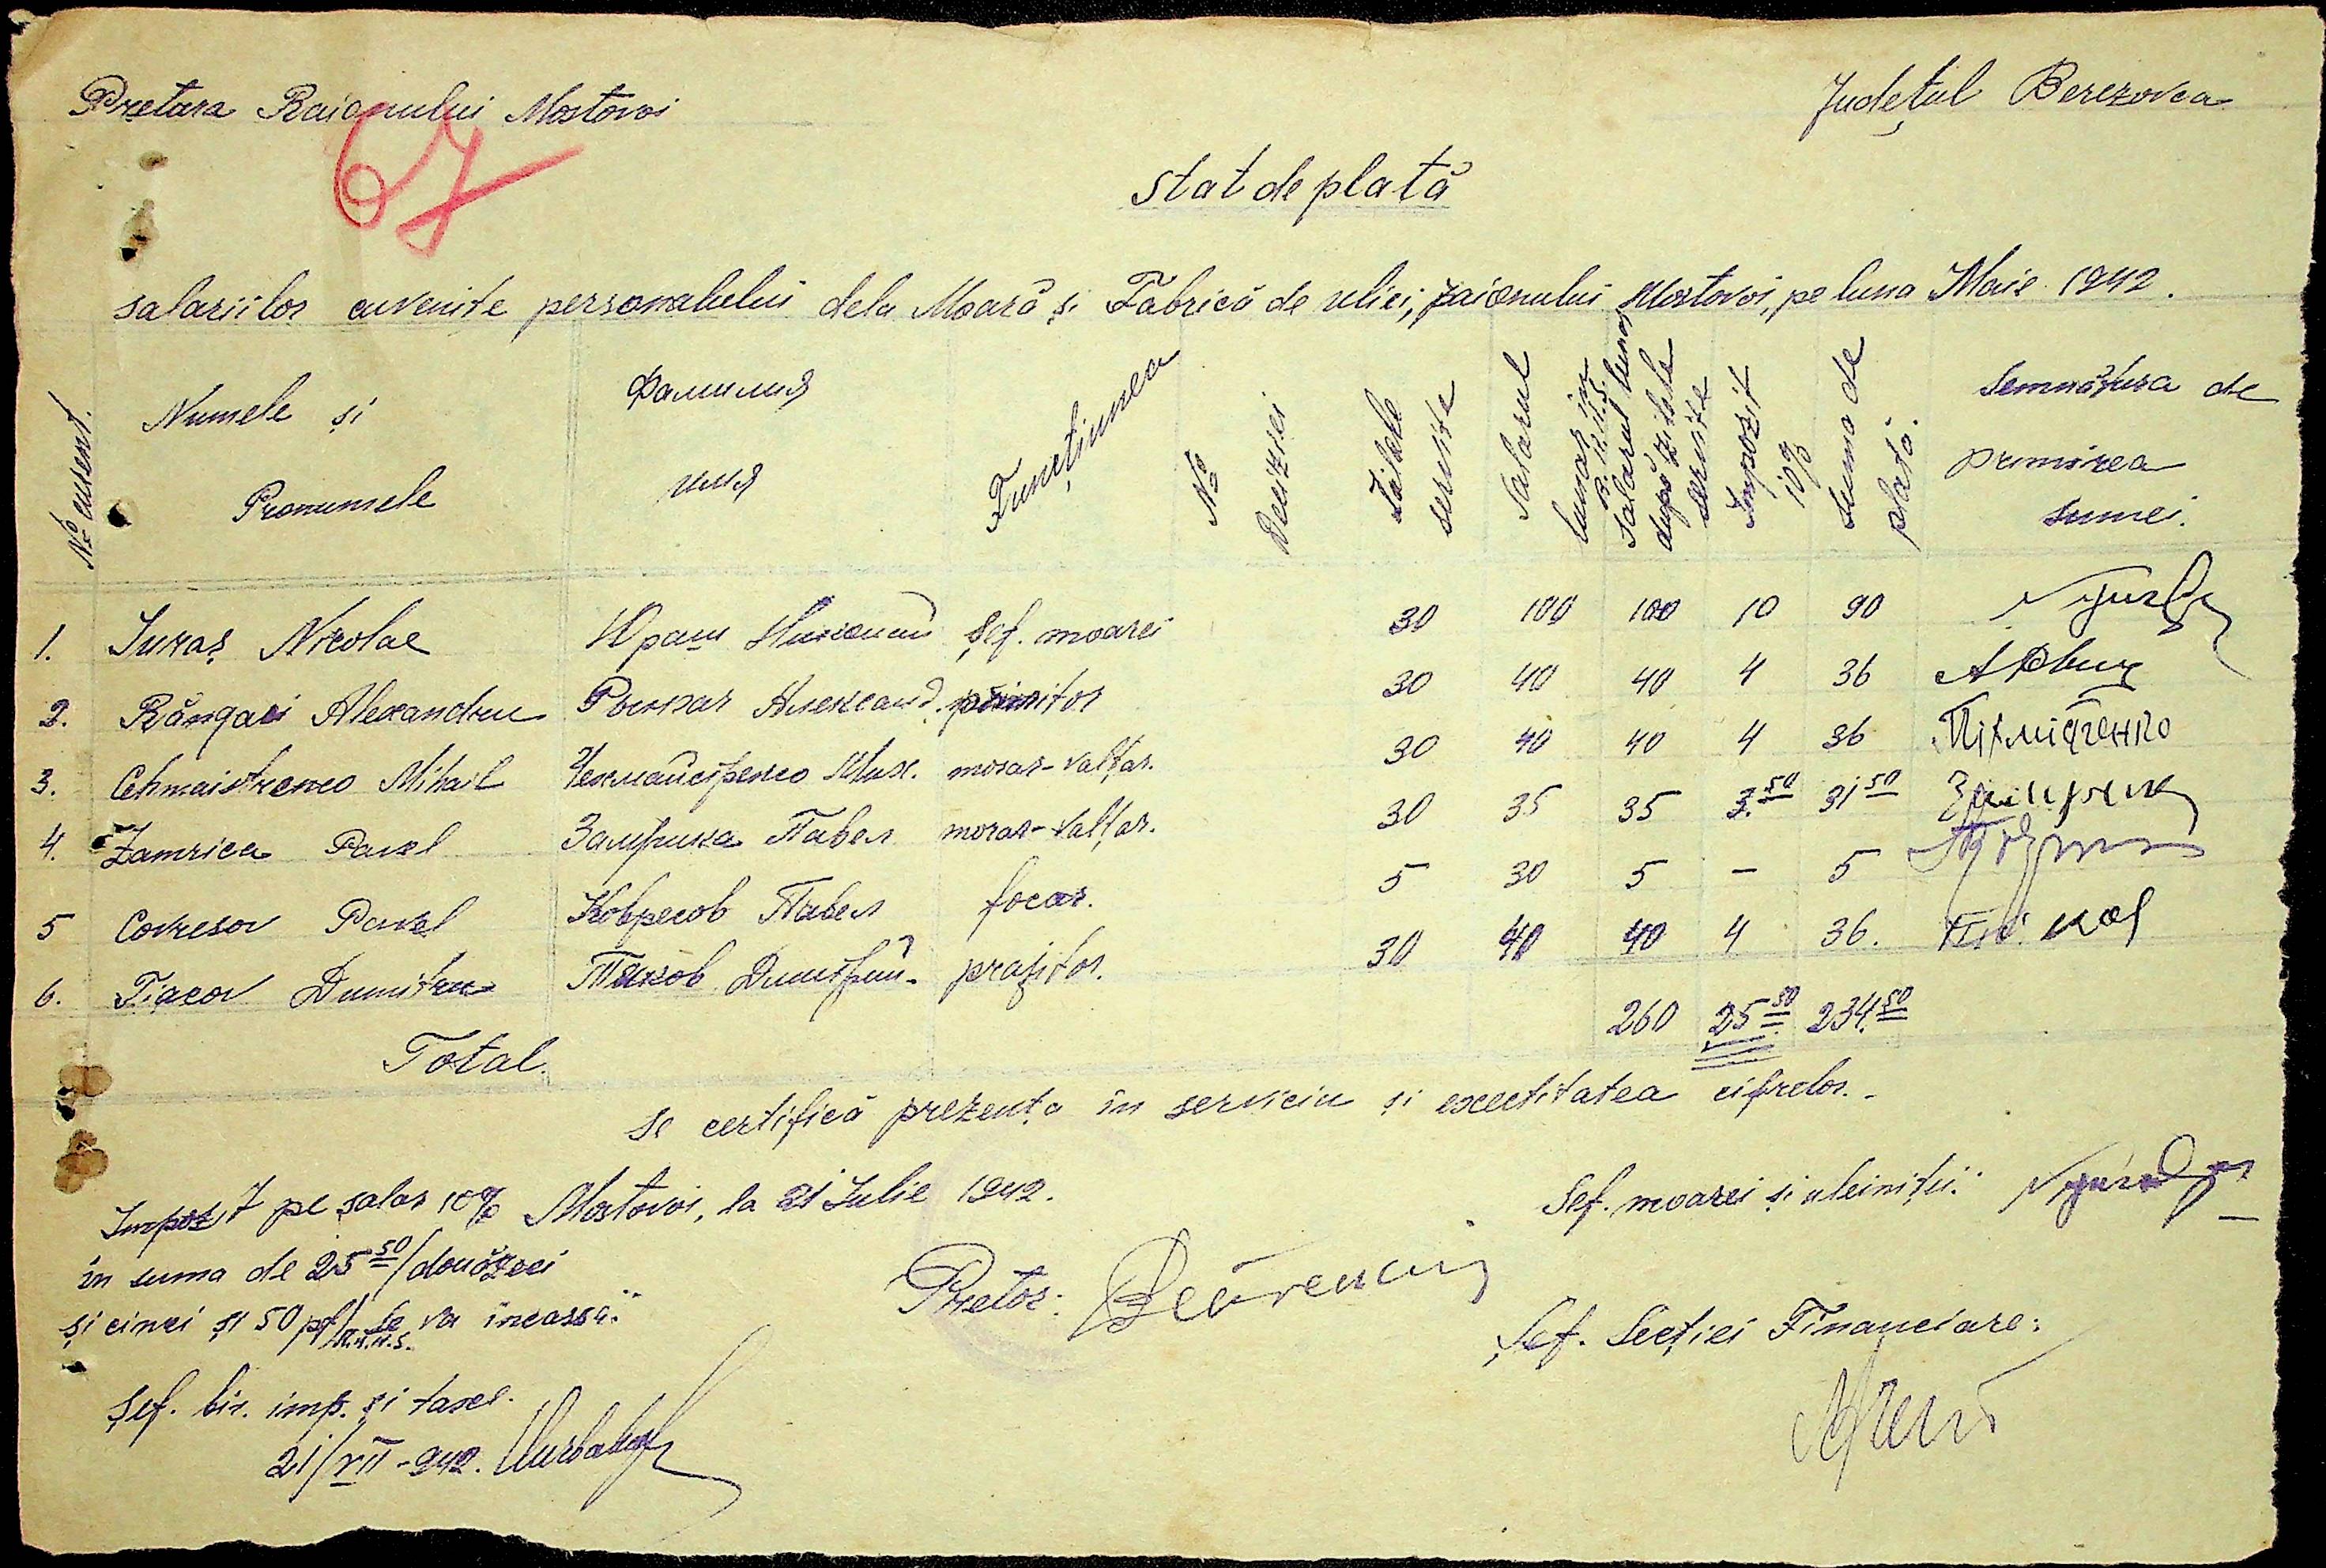 Pretura Raionului Mostovoi
Județul Berezovca
67
Stat de plată
salariilor cuvenite personalului dela Moară și Fabrică de ulei, raionului Mostovoi, pe luna Maie 1942.
No curent.
Numele și Pronumele
Фамилия имя
Funcțiunea
No Deciziei
Zilele servite
Salarul lunar in R.K.K.S.
Salarul lunar după zilele servite
Impozit 10%
Suma de plată.
Semnătura de primirea sumei.
1. Juraș Nicolae Юраш Николай Șef. moarei 30 100 100 10 90
2. Rângaci Alexandru Александ. primitor 30 40 40 4 36
3. Cehmaistrenco Mihail Чехмайстренко Мих. morar-valțar. 30 40 40 4 36
4. Zamrica Pavel Замрика Павел morar-valțar. 30 35 35 3.50 31 50
5 Covresov Pavel Ковресов Павел focar. 5 30 5 – 5
6. Tiacov Dumitru Тяков Дмитрий prăjitor. 30 40 40 4 36.
Total. 260 25 50 234.50
Se certifică prezența in serviciu și exectitatea cifrelor.-
Impozit pe salar 10%
in suma de 25 50/douăzeci
și cinci și 50 pf/ R.K.K.S. se va incassă."
Șef. bir. imp. și taxel.
21/VII-942.
Mostovoi, la 21 Iulie 1942.
Pretor:
Șef. moarei și uleiniții:
Șef. Secției Financiare: